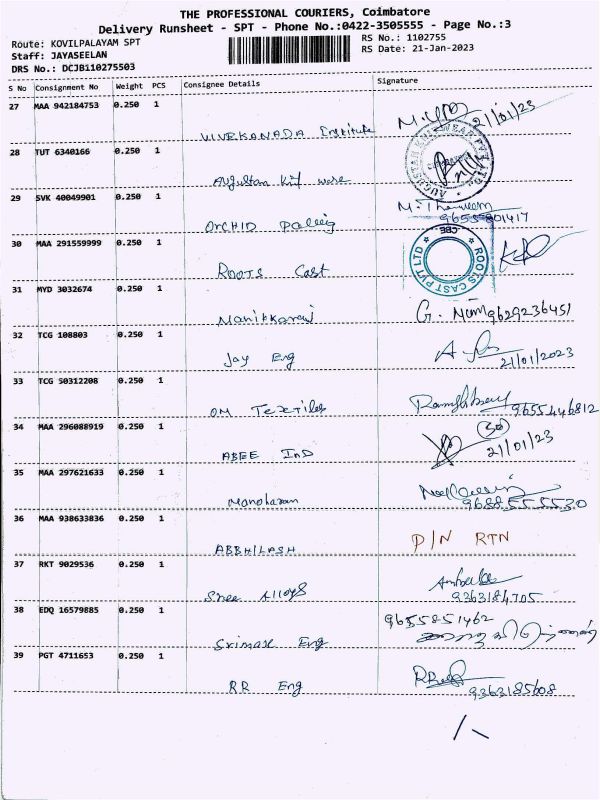 THE PROFESSIONAL COURIERS, Coimbatore
Delivery Runsheet - SPT - Phone No.:0422-3505555 - Page No.:3
Route: KOVILPALAYAM SPT
RS No.: 1102755
Staff: JAYASEELAN
RS Date: 21-Jan-2023
DRS No.: DCJB110275503
S No Consignment No Weight PCS Consignee Details Signature
27 MAA 942184753 0.250 1
VIVEKANADA Institute 21/01/23
28 TUT 6340166 0.250 1
Augustan Knit wire
29 SVK 40049901 0.250 1
ORCHID
9655801417
30 MAA 291559999 0.250 1
ROOTS CAST PVT LTD
CBE
Roots Cast
31 MYD 3032674 0.250 1
9629236451
32 TCG 108803 0.250 1
Jay Eng 21/01/2023
33 TCG 50312208 0.250 1
OM Textiles 9655446812
34 MAA 296088919 0.250 1
ABEE IND 21/01/23
35 MAA 297621633 0.250 1
Manoharan 9688555530
36 MAA 938633836 0.250 1
ABBHILASH P/N RTN
37 RKT 9029536 0.250 1
Shree Alloys 9363184705
38 EDQ 16579885 0.250 1
9655851462
Srimax Eng
39 PGT 4711653 0.250 1
RR Eng 9363185608